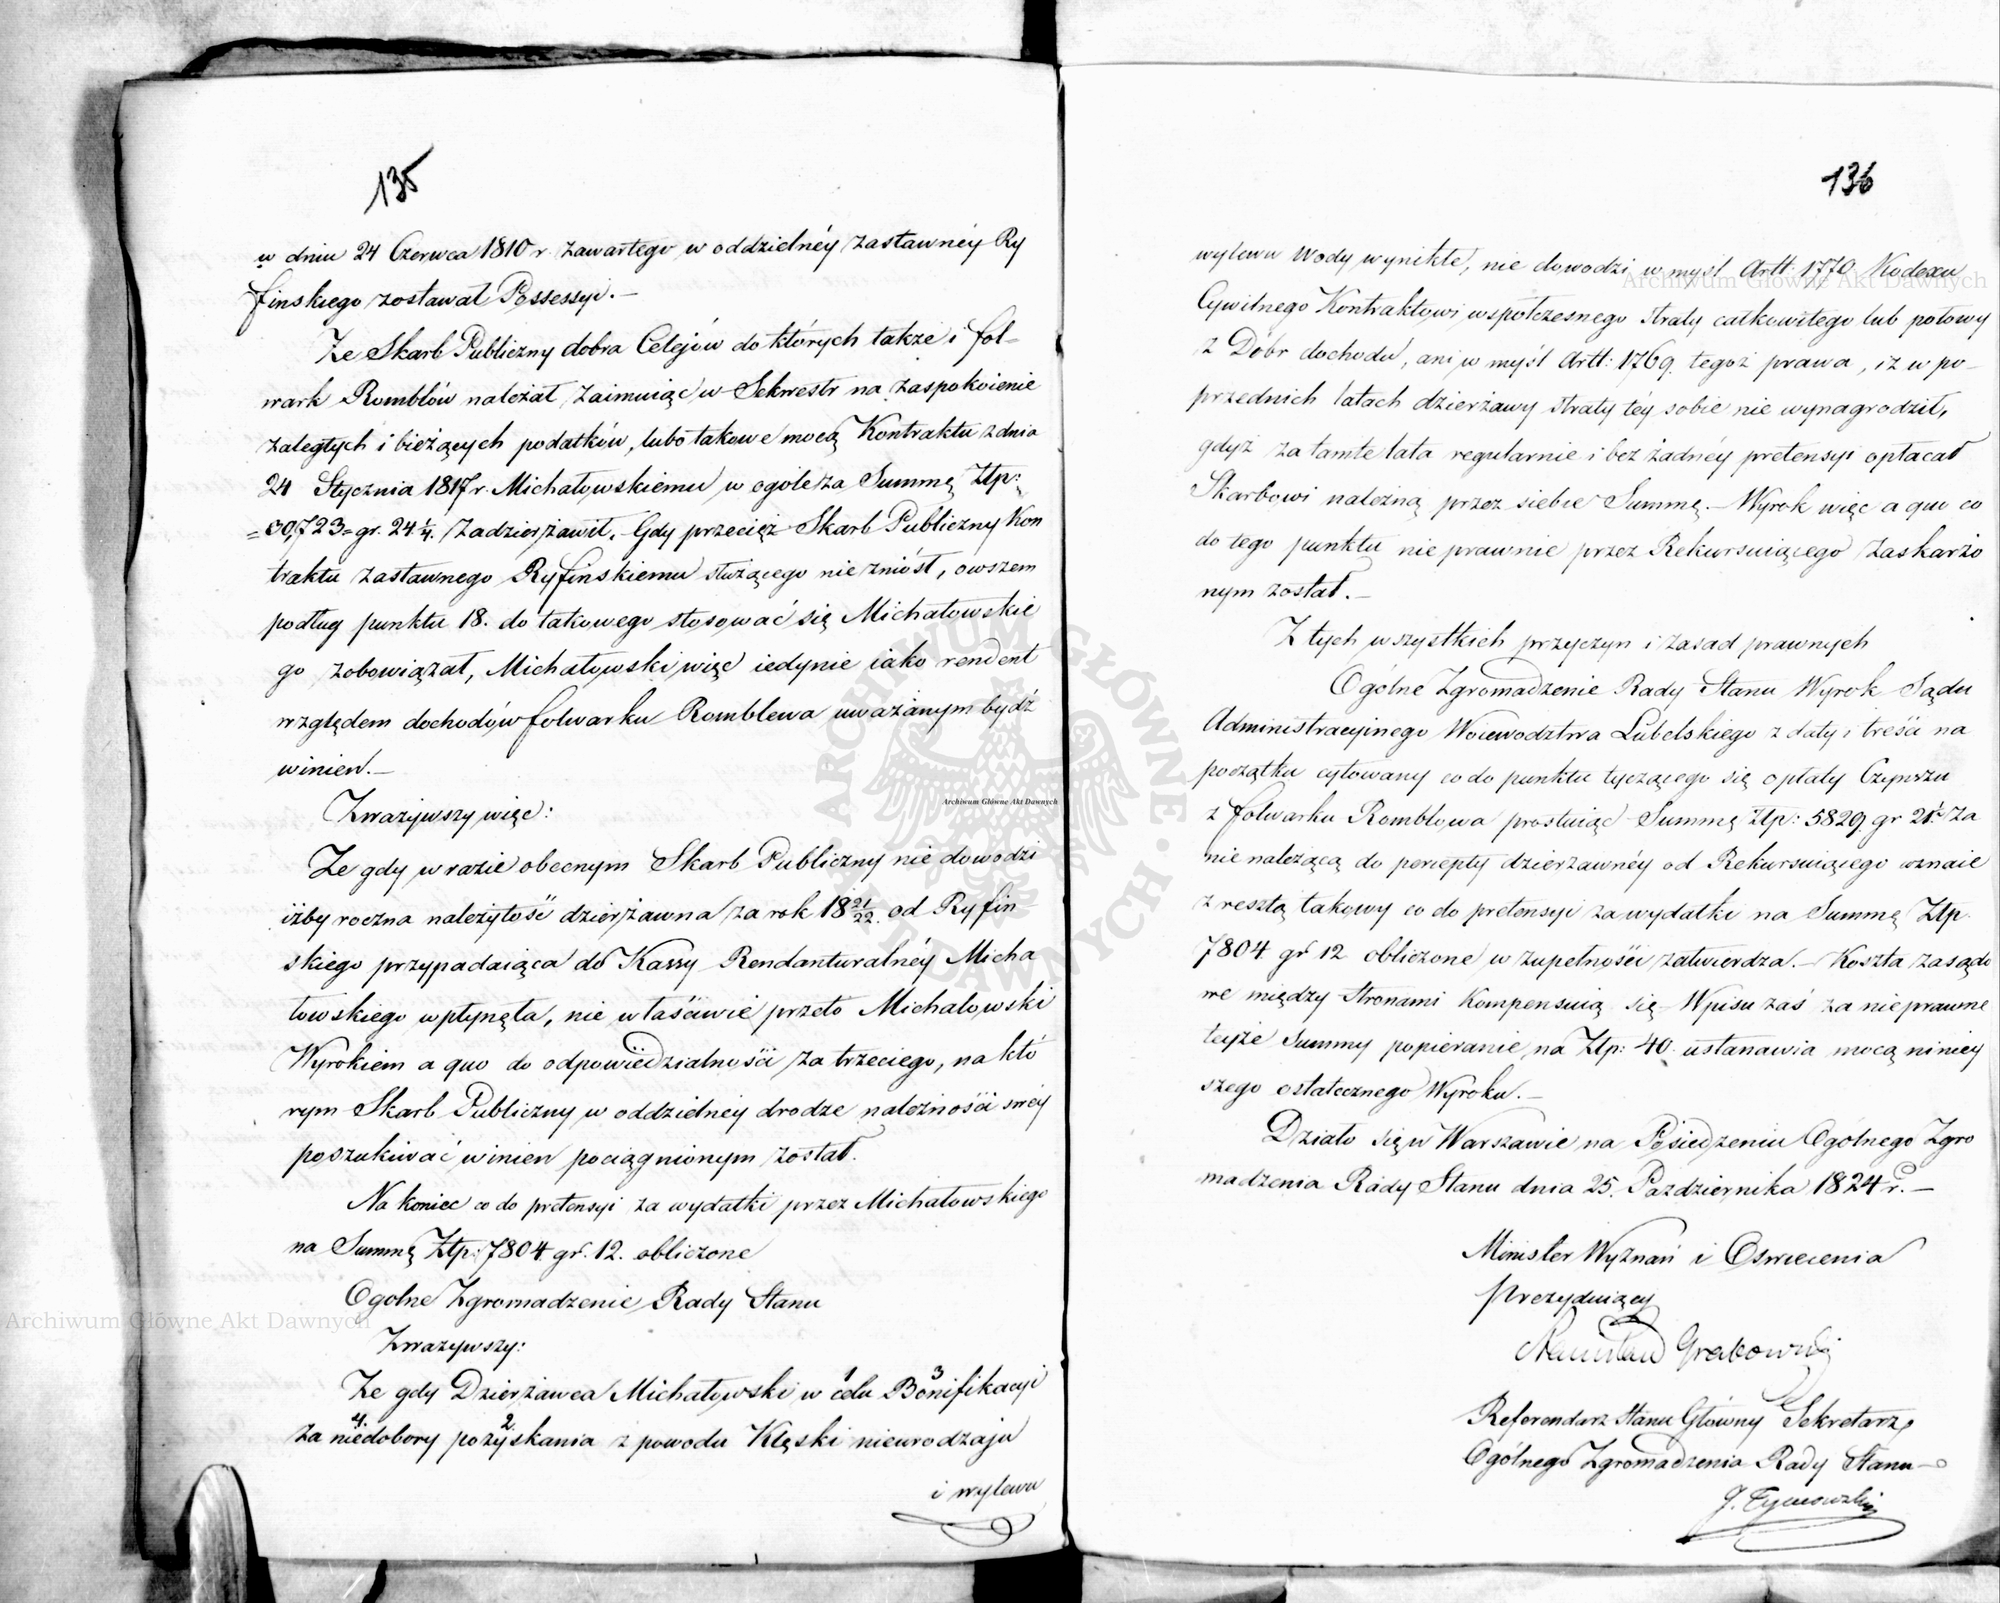 135
w dniu 24 Czerwca 1810 r. zawartego w oddzielnéy zastawnéy Ry
finskiego zostawał Possessyi.—
Ze Skarb Publiczny dobra Celejów do których także i fol-
wark Rombłów należał zaimuiąc w Sekwestr na zaspokoienie
zaległych i bieżących podatków, lubo takowe mocą Kontraktu z dnia
24 Stycznia 1817 r. Michałowskiemu w ogóle za Summę Złp:
=30,723= gr. 24¼. zadzierżawił. Gdy przecięż Skarb Publiczny Kon
traktu zastawnego Ryfińskiemu służącego nie zniósł, owszem
podług punktu 18. do takowego stosować się Michałowskie
go zobowiązał, Michałowski więc iedynie iako rendent
względem dochodów folwarku Romblewa uważanym bydź
winien.—
Zważywszy więc:
Ze gdy w razie obecnym Skarb Publiczny nie dowodzi
iżby roczna należytość dzierżawna za rok 18 21/22. od Ryfin-
skiego przypadaiąca do Kassy Rendanturalnéy Micha
łowskiego wpłynęła, nie właściwie przeto Michałowski
Wyrokiem a quo do odpowiedzialności za trzeciego, na któ
rym Skarb Publiczny w oddzielney drodze należności swey
poszukiwać winien pociągnionym został.
Na koniec co do pretensyi za wydatki przez Michałowskiego
na Summę Złp: 7804 gr. 12. obliczone
Ogolne Zgromadzenie Rady Stanu
Zważywszy:
Ze gdy Dzierżawca Michałowski w celu Bonifikacyi
1 3
za niedobory pozyskania z powodu Klęski nieurodzaju
4. 2
i wylewu
136
wylewu Wody wynikłe, nie dowodzi w myśl Artt: 1770 Kodexu
Cywilnego Kontraktowi współczesnego straty całkowitego lub połowy
z Dobr dochodu, ani w myśl Artt: 1769 tegoż prawa, iż w po-
przednich latach dzierżawy straty téy sobie nie wynagrodził,
gdyż za tamte lata regularnie i bez żadnéy pretensyi opłacał
Skarbowi należną przez siebie Summę.— Wyrok więc a quo co
do tego punktu nieprawnie przez Rekursuiącego zaskarżo
nym został.—
Z tych wszystkich przyczyn i zasad prawnych
Ogólne Zgromadzenie Rady Stanu Wyrok Sądu
Administracyinego Woiewodztwa Lubelskiego z daty i treści na
początku cytowany co do punktu tyczącego się opłaty Czynszu
z folwarku Rombłowa prostuiąc Summę Złp: 5829. gr 21 za
nienależącą do percepty dzierżawnéy od Rekursuiącego uznaie
z resztą takowy co do pretensyi za wydatki na Summę Złp.
7804 gr 12 obliczone w zupełności zatwierdza.— Koszta zasądo
we między Stronami Kompensuią się— Wpisu zaś za nieprawne
teyże Summy popieranie na Złp: 40. ustanawia mocą niniey
szego ostatecznego Wyroku.—
Działo się w Warszawie na Posiedzeniu Ogólnego Zgro
madzenia Rady Stanu dnia 25. Pazdziernika 1824 r.—
Minister Wyznań i Oswiecenia
Prezyduiący
Stanisław Grabowski
Referendarz Stanu Główny Sekretarz
Ogólnego Zgromadzenia Rady Stanu
J. Tymowski
Archiwum Główne Akt Dawnych
Archiwum Główne Akt Dawnych
Archiwum Główne Akt Dawnych
ARCHIWUM GŁÓWNE AKT DAWNYCH